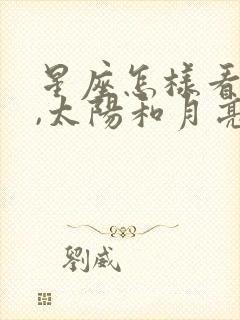 星座怎樣看
,太陽和月亮
劉威